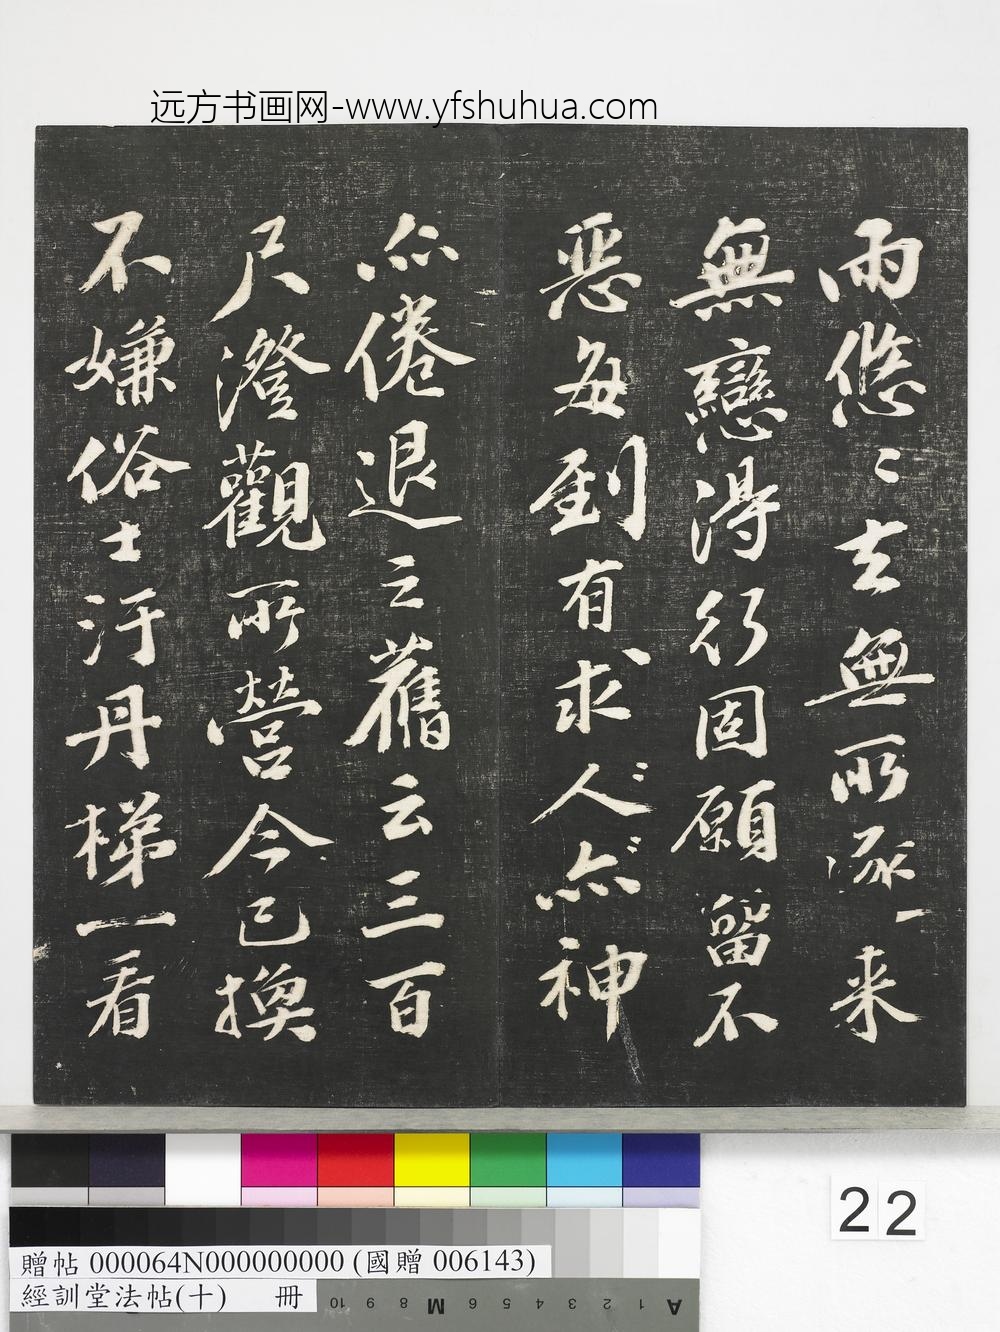 远方书画网-www.yfshuhua.com
兩悠〻去無所逐來
無戀得行固願留不
惡每到有求人亦神
亦倦退之舊云三百
尺澄觀所營今已換
不嫌俗士汙丹梯一看
22
贈帖 000064N000000000 (國贈 006143)
經訓堂法帖(十) 冊
10 9 8 M 6 5 4 3 2 1 A